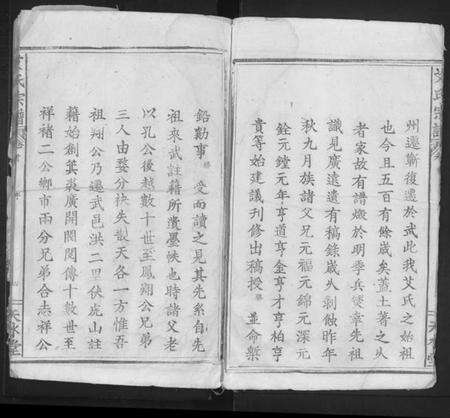 州遷蘄復遷於武此我艾氏之始祖
也今且五百有餘歲矣蓋土著之久
者家故有譜燬於明季兵燹幸先祖
識見廣遠遺有稿錄歲久剝蝕昨年
秋九月族諸父兄元福元錦元深元
銓元鐘元年亨道亨金亨才亨柏亨
貴等始建議刊修出稿授 並命槧
鉛勷事 受而讀之見其先系自先
祖來武註籍所遺墨帙也時諸父老
以孔公後越數十世至鳳翔公兄弟
三人由婺分袂失散天各一方惟吾
祖翔公乃遷武邑洪二里伏虎山註
籍始創箕裘廣開閥閱傳十數世至
祥褚二公鄉市兩分兄弟合志祥公
氏宗譜
序
天水堂